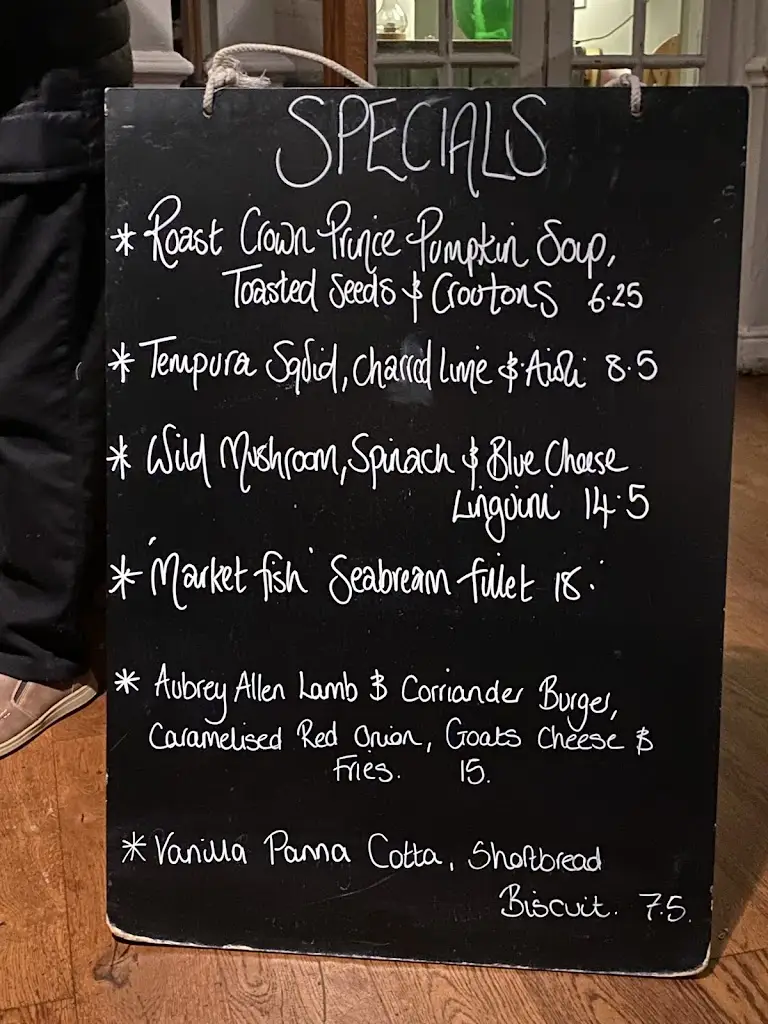 SPECIALS
* Roast Crown Prince Pumpkin Soup,
Toasted Seeds & Croutons 6.25
* Tempura Squid, Charred Lime & Aioli 8.5
* Wild Mushroom, Spinach & Blue Cheese
Linguini 14.5
* 'Market fish' Seabream fillet 18.
* Aubrey Allen Lamb & Corriander Burger,
Caramelised Red Onion, Goats Cheese &
Fries. 15.
* Vanilla Panna Cotta, Shortbread
Biscuit. 7.5.